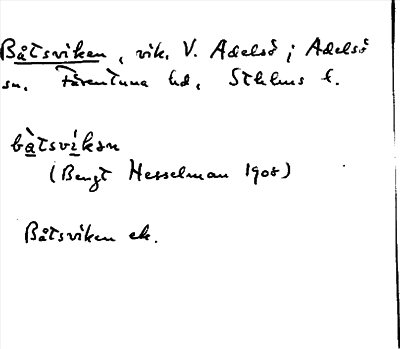 Båtsviken, vik, V. Adelsö i Adelsö
sn. Färentuna hd, Sthlms l.
bàtsvíkən
(Bengt Hesselman 1908)
Båtsviken ek.